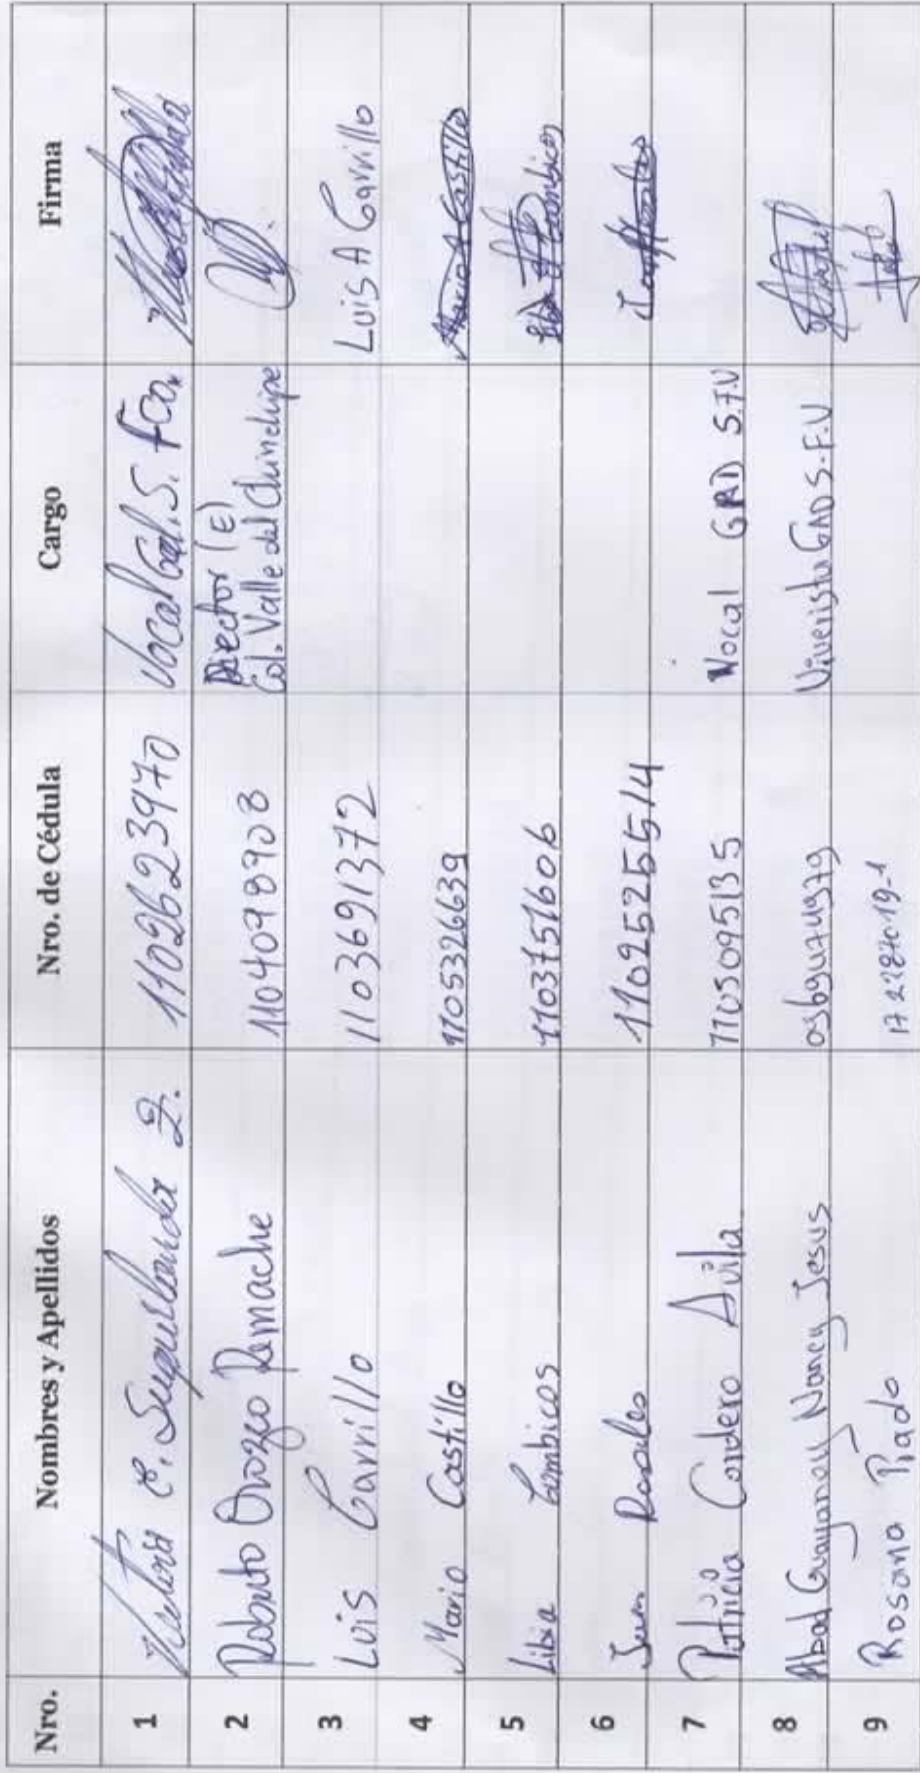 Nro. Nombres y Apellidos Nro. de Cédula Cargo Firma
1 1102623970 Vocal S. Fco.
2 Roberto Orozco Ramache 1104098908 Director (E)
Col. Valle del Chinchipe
3 Luis Carrillo 1103691372 Luis A Carrillo
4 Mario Castillo 1105326639 Mario A Castillo
5 Libia Cumbicos 1103751606 Cumbicos
6 Rosales 1102525514
7 Patricia Cordero Avila 1105095135 Vocal GAD S.F.V
8 Abad Guayanay Nancy Jesus Viverista GAD S.F.V
9 Rosana Prado